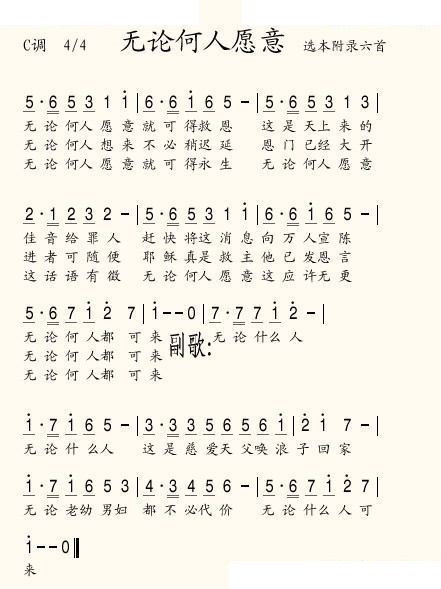 C调 4/4 无论何人愿意 选本附录六首
5·6 5 3 1 i | 6·6 i 6 5 - | 5·6 5 3 1 3 |
无论何人愿意就可得救恩 这是天上来的
无论何人想来不必稍迟延 恩门已经大开
无论何人愿意就可得永生 无论何人愿意
2·1 2 3 2 - | 5·6 5 3 1 i | 6·6 i 6 5 - |
佳音给罪人 赶快将这消息向万人宣陈
进者可随便 耶稣真是救主他已发恩言
这话语有徵 无论何人愿意这应许无更
5·6 7 i 2 7 | i - - 0 | 7·7 7 i 2 - |
无论何人都可来 副歌: 无论什么人
无论何人都可来
无论何人都可来
i·7 i 6 5 - | 3·3 3 5 6 5 6 i | 2 i 7 - |
无论什么人 这是慈爱天父唤浪子回家
i·7 i 6 5 3 | 4·3 4 5 6 - | 5·6 7 i 2 7 |
无论老幼男妇 都不必代价 无论什么人可
i - - 0 ‖
来